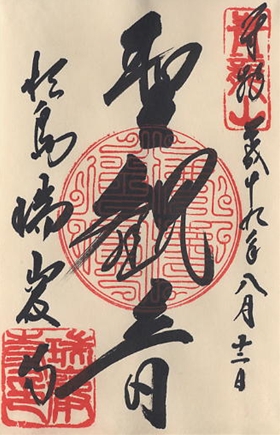 奉拝
平成十九年八月十三日
聖観音
松島瑞巌寺
青龍山